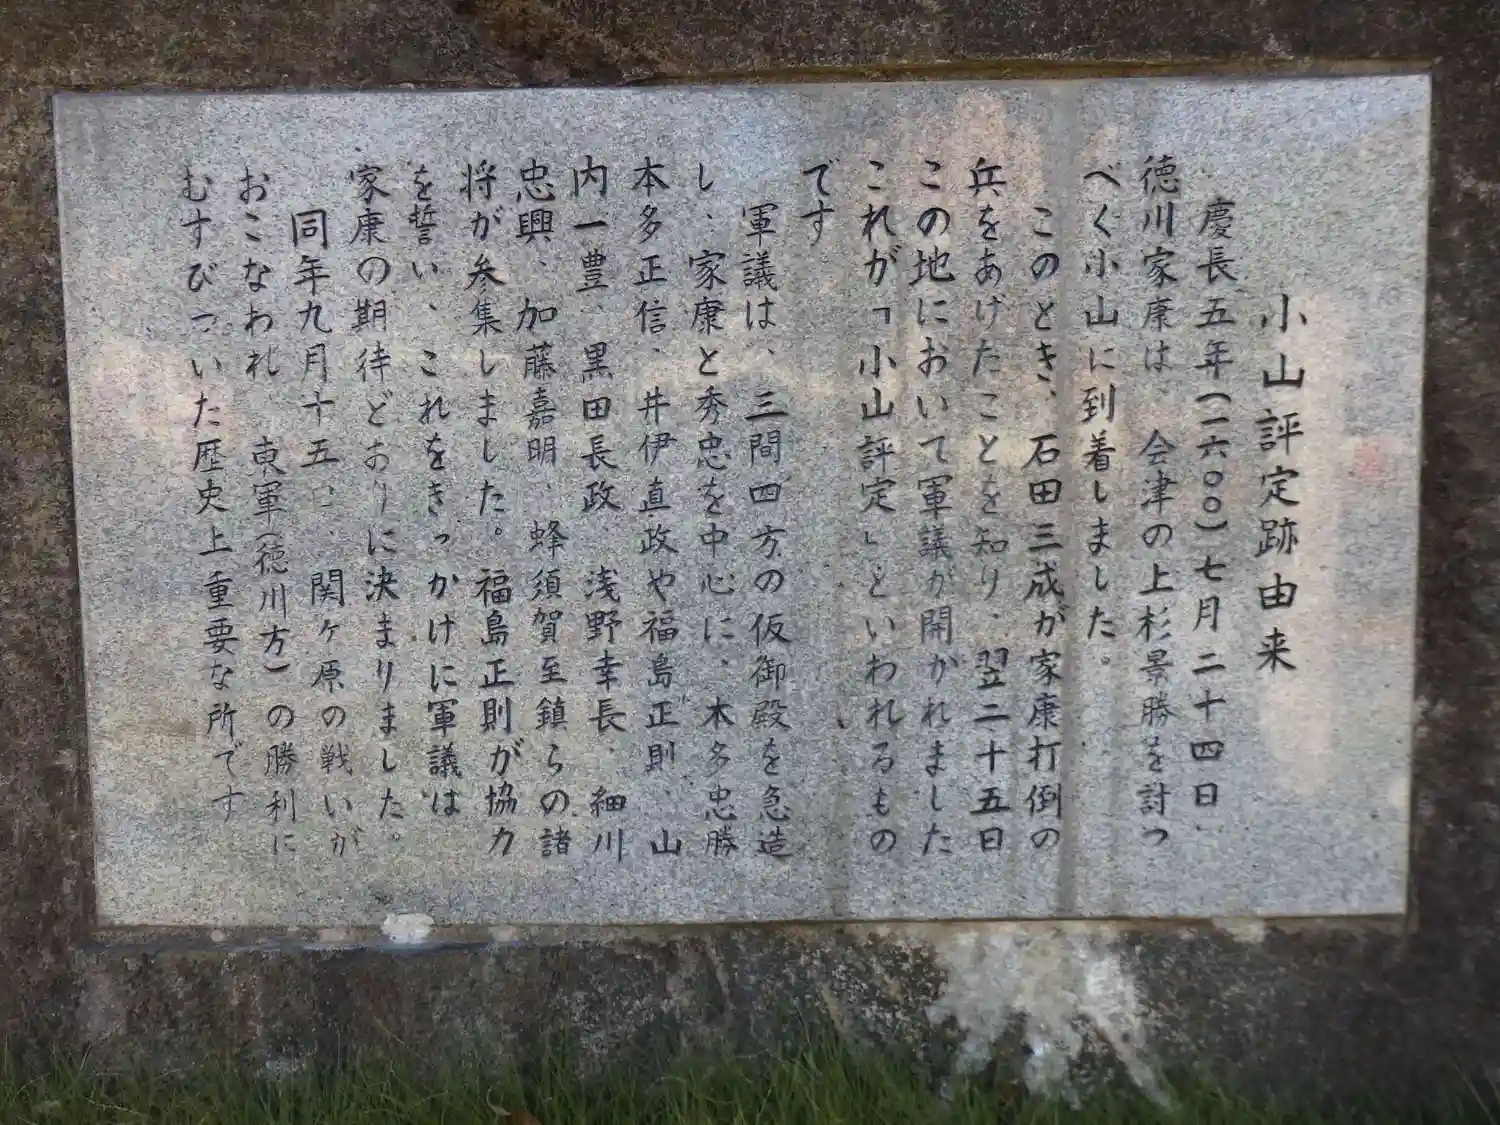 小山評定跡由来
慶長五年(一六〇〇)七月二十四日、
徳川家康は、会津の上杉景勝を討つ
べく小山に到着しました。
このとき、石田三成が家康打倒の
兵をあげたことを知り、翌二十五日
この地において軍議が開かれました
これが「小山評定」といわれるもの
です
軍議は、三間四方の仮御殿を急造
し、家康と秀忠を中心に、本多忠勝
本多正信、井伊直政や福島正則、山
内一豊、黒田長政、浅野幸長、細川
忠興、加藤嘉明、蜂須賀至鎮らの諸
将が参集しました。福島正則が協力
を誓い、これをきっかけに軍議は
家康の期待どおりに決まりました。
同年九月十五日、関ヶ原の戦いが
おこなわれ、東軍(徳川方)の勝利に
むすびついた歴史上重要な所です